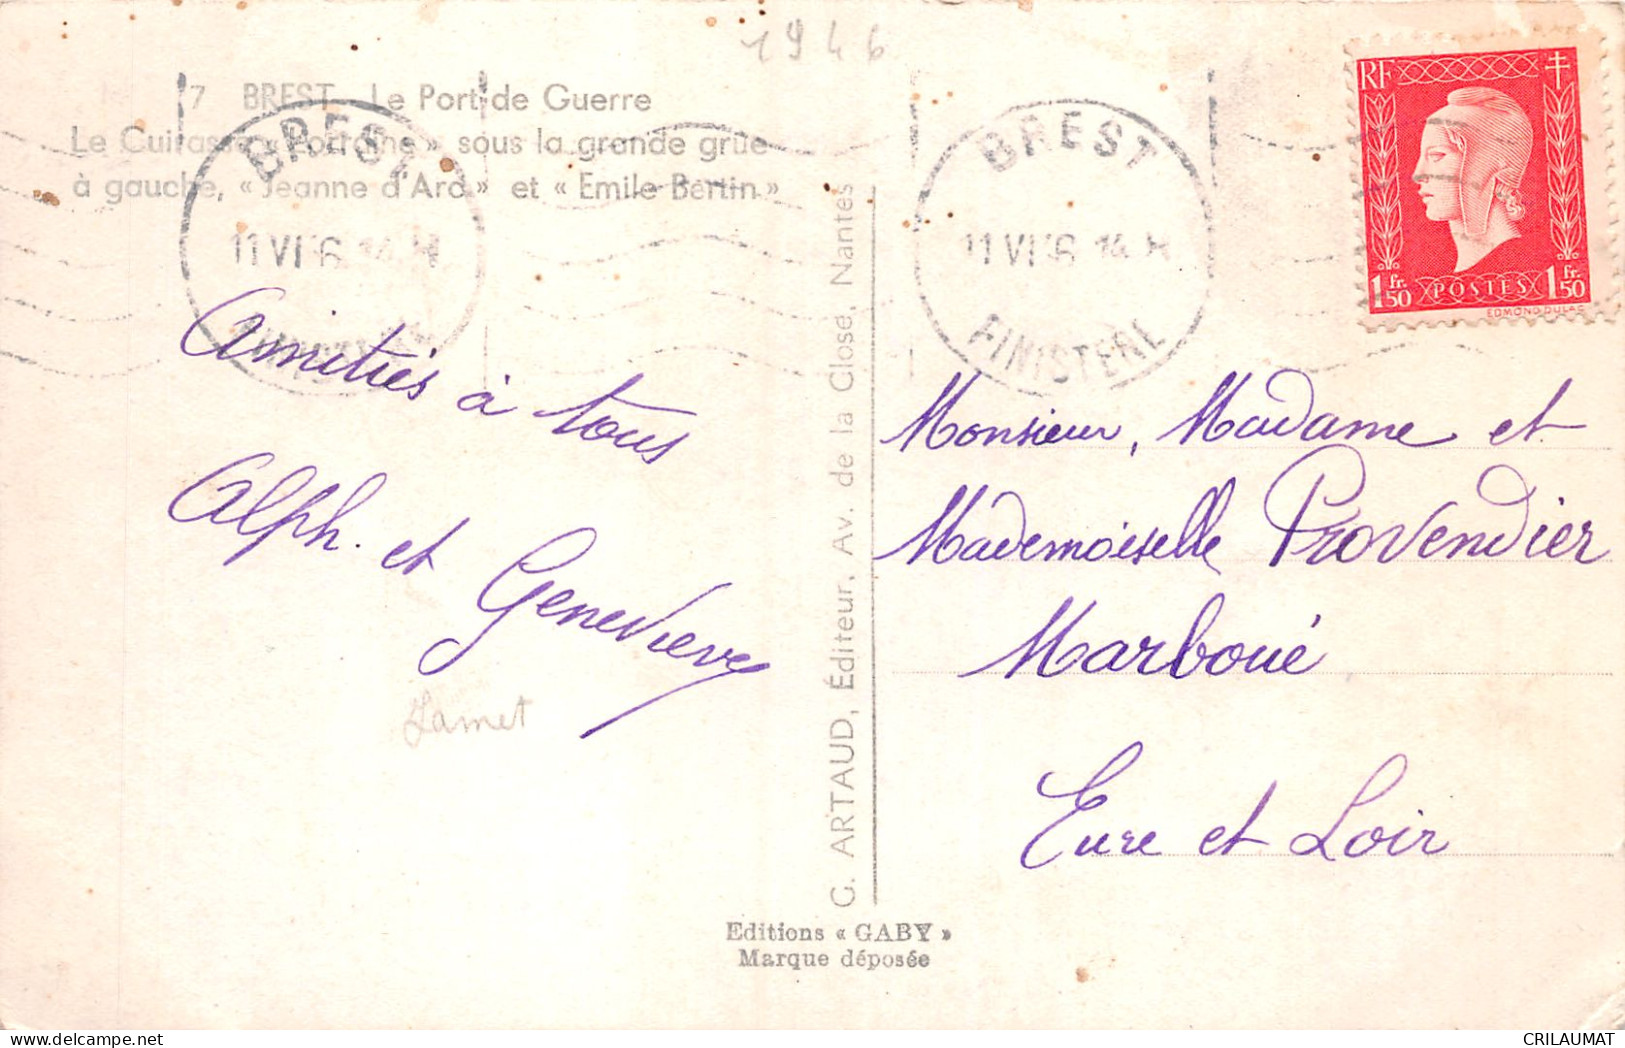 1946
7 BREST Le Port de Guerre
Le Cuirassé « Lorraine » sous la grande grue
à gauche, « Jeanne d'Arc » et « Emile Bertin »
BREST
11 VI 14 H
FINISTERE
BREST
11 VI 14 H
FINISTERE
RF
1 fr. 50 POSTES 1 fr. 50
EDMOND DULAC
Amitiés à tous
Alph. et Geneviève
Lamet
G. ARTAUD, Éditeur, Av. de la Close, Nantes
Monsieur, Madame et
Mademoiselle Provendier
Marboué
Eure et Loir
Editions « GABY »
Marque déposée
CRILAUMAT